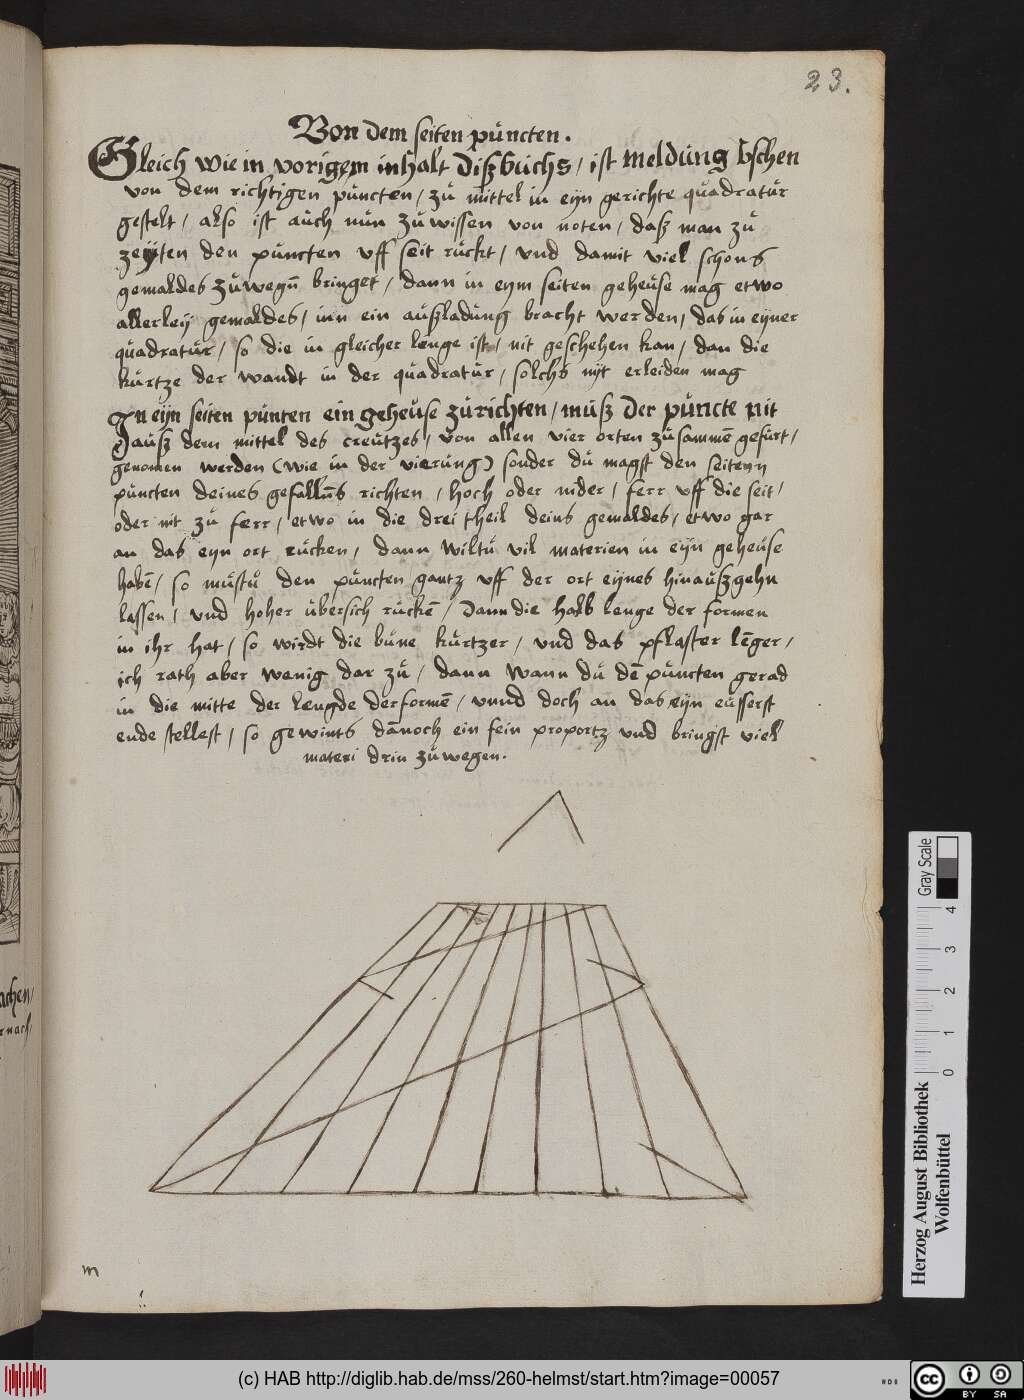 23.
Von dem seiten puncten.
Gleich wie in vorigem inhalt dißbuchs, ist meldung bschen
von dem richtigen puncten, zu mittel in eyn gerichte quadratur
gestelt, also ist auch nun zuwissen von noten, daß man zu
zeyten den puncten uff seit ruckt, vnd damit viel schons
gemaldes zuwegn̄ bringet, dann in eym seiten geheuse mag etwo
allerleÿ gemaldes, inn ein außladung bracht werden, das in eyner
quadratur, so die in gleicher lenge ist, nit geschehen kan, dan die
kurtze der wandt in der quadratur, solchs nÿt erleiden mag
In eÿn seiten punten ein geheuse zurichten, muß der puncte nit
auß dem mittel des creutzes, von allen vier orten zusammē gefurt,
genomen werden (wie in der vierung) sonder du magst den seitenn
puncten deines gefalln̄s richten, hoch oder nider, ferr uff die seit,
oder nit zu ferr, etwo in die drei theil deins gemaldes, etwo gar
an das eyn ort rucken, dann wiltu vil materien in eÿn geheuse
habē, so mustu den puncten gantz uff der ort eÿnes hinaußgehn
lassen, vnd hoher ubersich ruckē, dann die halb lenge der formen
in ihr hat, so wirdt die bune kurtzer, vnd das pflaster lēger,
ich rath aber wenig dar zu, dann wann du dē puncten gerad
in die mitte der lengde der formē, vnnd doch an das eÿn eusserst
ende stellest, so gewints dānoch ein fein proportz vnd bringst viel
materi drin zuwegen.
m
achen,
r nach,
Gray Scale
0 1 2 3 4
Herzog August Bibliothek
Wolfenbüttel
(c) HAB http://diglib.hab.de/mss/260-helmst/start.htm?image=00057
cc BY SA